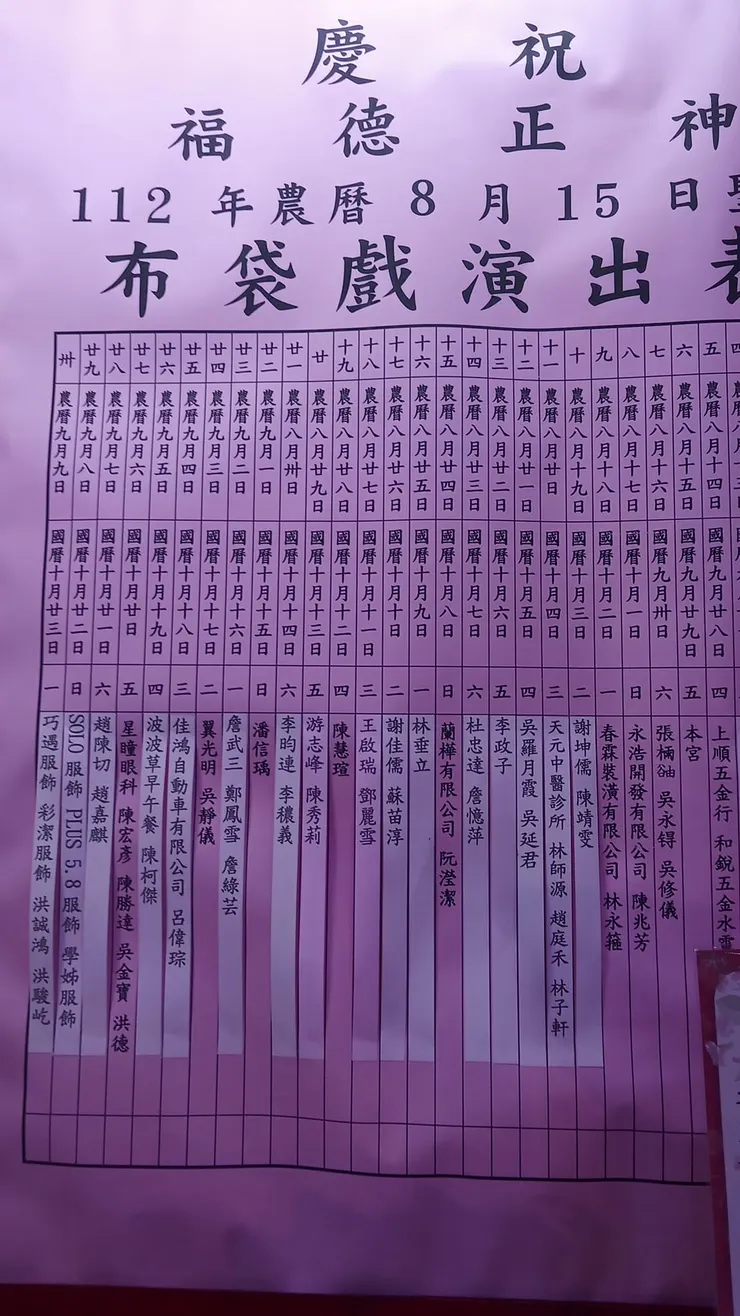 慶祝
福德正神
112年農曆8月15日
布袋戲演出表
五 農曆八月十四日 國曆九月廿八日 四 上順五金行 和銳五金水電
六 農曆八月十五日 國曆九月廿九日 五 本宮
七 農曆八月十六日 國曆九月卅日 六 吳永锝 吳修儀
八 農曆八月十七日 國曆十月一日 日 永浩開發有限公司 陳兆芳
九 農曆八月十八日 國曆十月二日 一 春霖裝潢有限公司 林永箍
十 農曆八月十九日 國曆十月三日 二 謝坤儒 陳靖雯
十一 農曆八月廿日 國曆十月四日 三 天元中醫診所 林師源 趙庭禾 林子軒
十二 農曆八月廿一日 國曆十月五日 四 吳羅月霞 吳延君
十三 農曆八月廿二日 國曆十月六日 五 李政子
十四 農曆八月廿三日 國曆十月七日 六 杜忠達 詹憶萍
十五 農曆八月廿四日 國曆十月八日 日 蘭樺有限公司 阮瀅潔
十六 農曆八月廿五日 國曆十月九日 一 林垂立
十七 農曆八月廿六日 國曆十月十日 二 謝佳儒 蘇苗淳
十八 農曆八月廿七日 國曆十月十一日 三 王啟瑞 鄧麗雪
十九 農曆八月廿八日 國曆十月十二日 四 陳慧瑄
廿 農曆八月廿九日 國曆十月十三日 五 游志峰 陳秀莉
廿一 農曆八月卅日 國曆十月十四日 六 李昀連 李穠義
廿二 農曆九月一日 國曆十月十五日 日 潘信瑀
廿三 農曆九月二日 國曆十月十六日 一 詹武三 鄭鳳雪 詹綠芸
廿四 農曆九月三日 國曆十月十七日 二 翼光明 吳靜儀
廿五 農曆九月四日 國曆十月十八日 三 佳鴻自動車有限公司 呂偉琮
廿六 農曆九月五日 國曆十月十九日 四 波波草早午餐 陳柯傑
廿七 農曆九月六日 國曆十月廿日 五 星瞳眼科 陳宏彥 陳勝達 吳金寶 洪德
廿八 農曆九月七日 國曆十月廿一日 六 趙陳切 趙嘉麒
廿九 農曆九月八日 國曆十月廿二日 日 SOLO服飾 PLUS 5.8服飾 學姊服飾
卅 農曆九月九日 國曆十月廿三日 一 巧遇服飾 彩潔服飾 洪誠鴻 洪駿屹